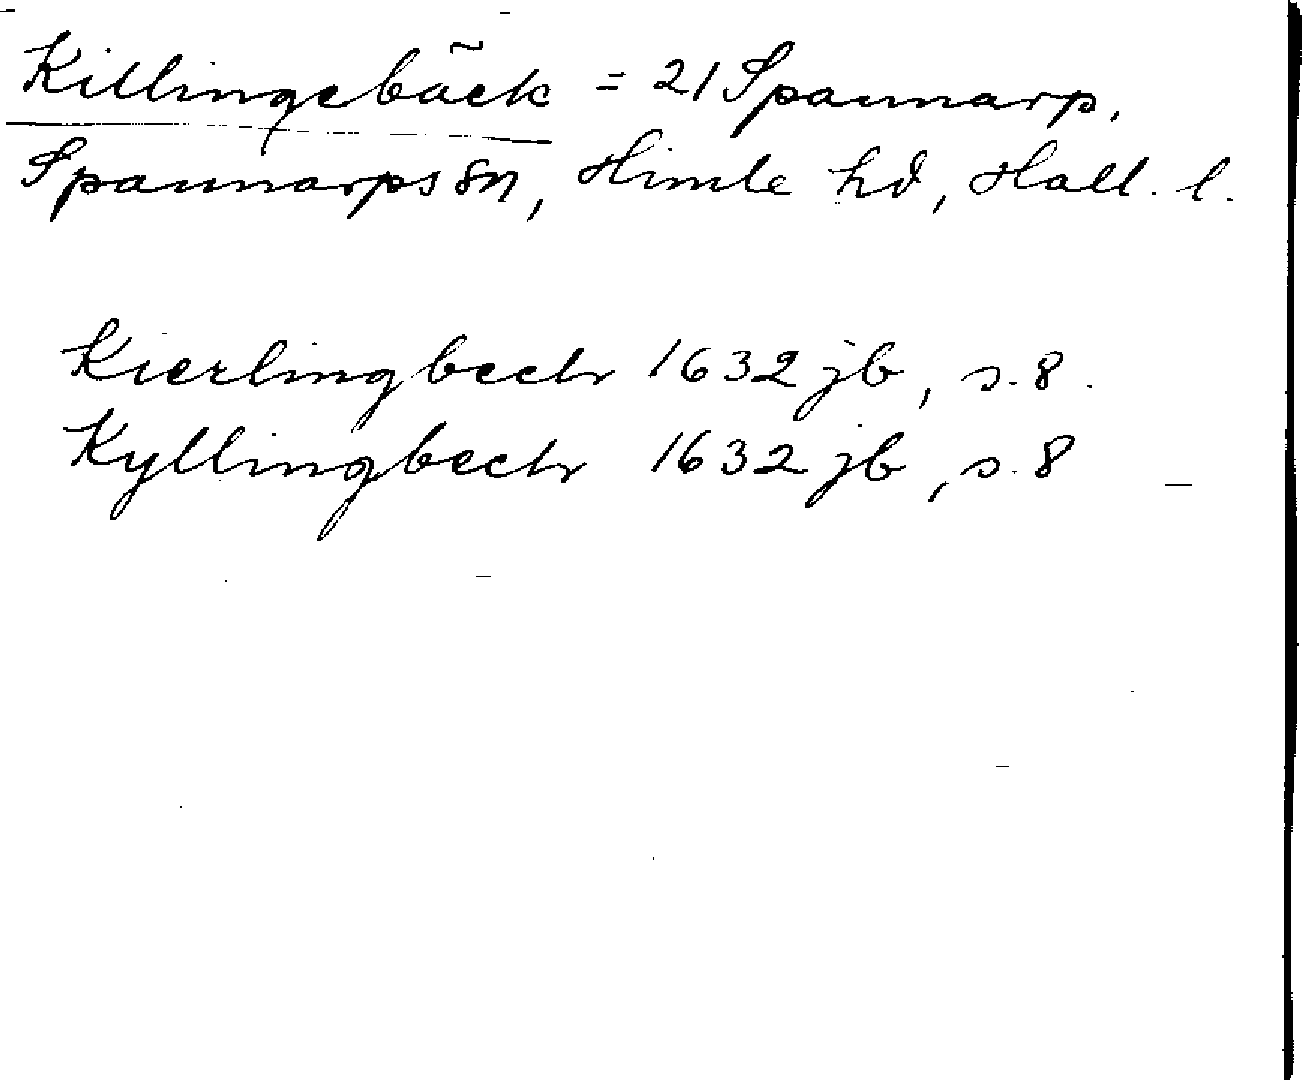 Killingebäck = 21 Spannarp,
Spannarps sn, Himle hd, Hall. l.
Kierlingbech 1632 jb, s. 8.
Kyllingbech 1632 jb, s. 8